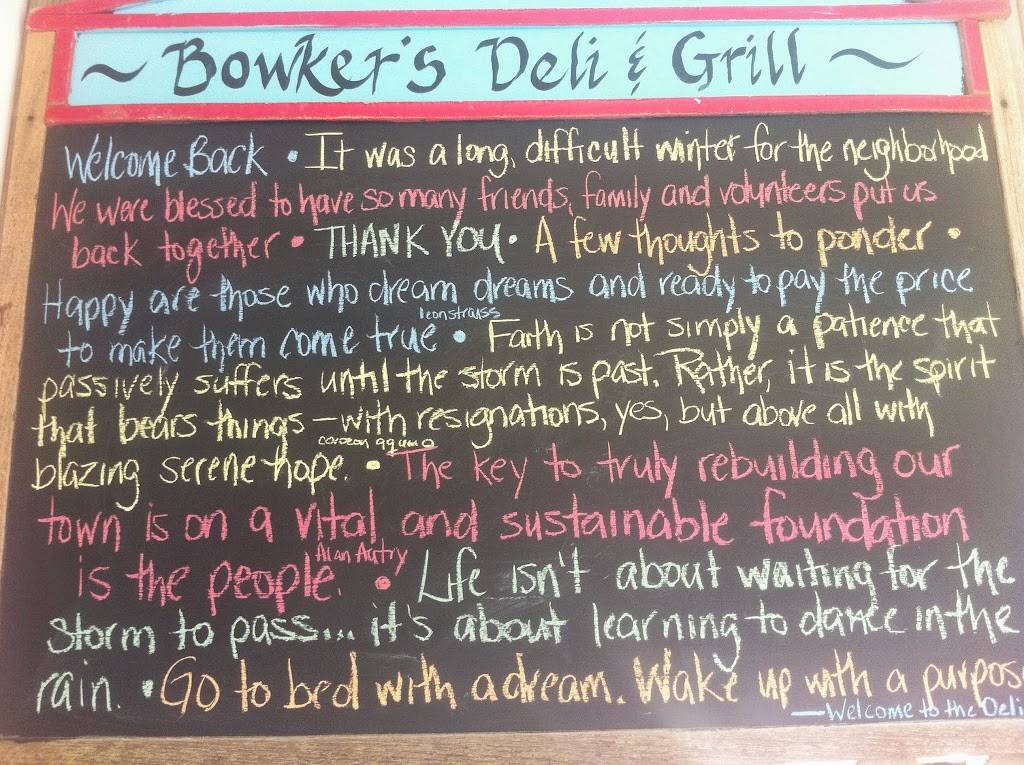 ~ Bowker's Deli & Grill ~
Welcome Back • It was a long, difficult winter for the neighborhood
We were blessed to have so many friends, family and volunteers put us
back together • THANK YOU • A few thoughts to ponder •
Happy are those who dream dreams and ready to pay the price
leon strauss
to make them come true • Faith is not simply a patience that
passively suffers until the storm is past. Rather, it is the spirit
that bears things – with resignations, yes, but above all with
corazon aquino
blazing serene hope. • The key to truly rebuilding our
town is on a vital and sustainable foundation
Alan Autry
is the people. • Life isn't about waiting for the
storm to pass... it's about learning to dance in the
rain. • Go to bed with a dream. Wake up with a purpos
—Welcome to the Deli